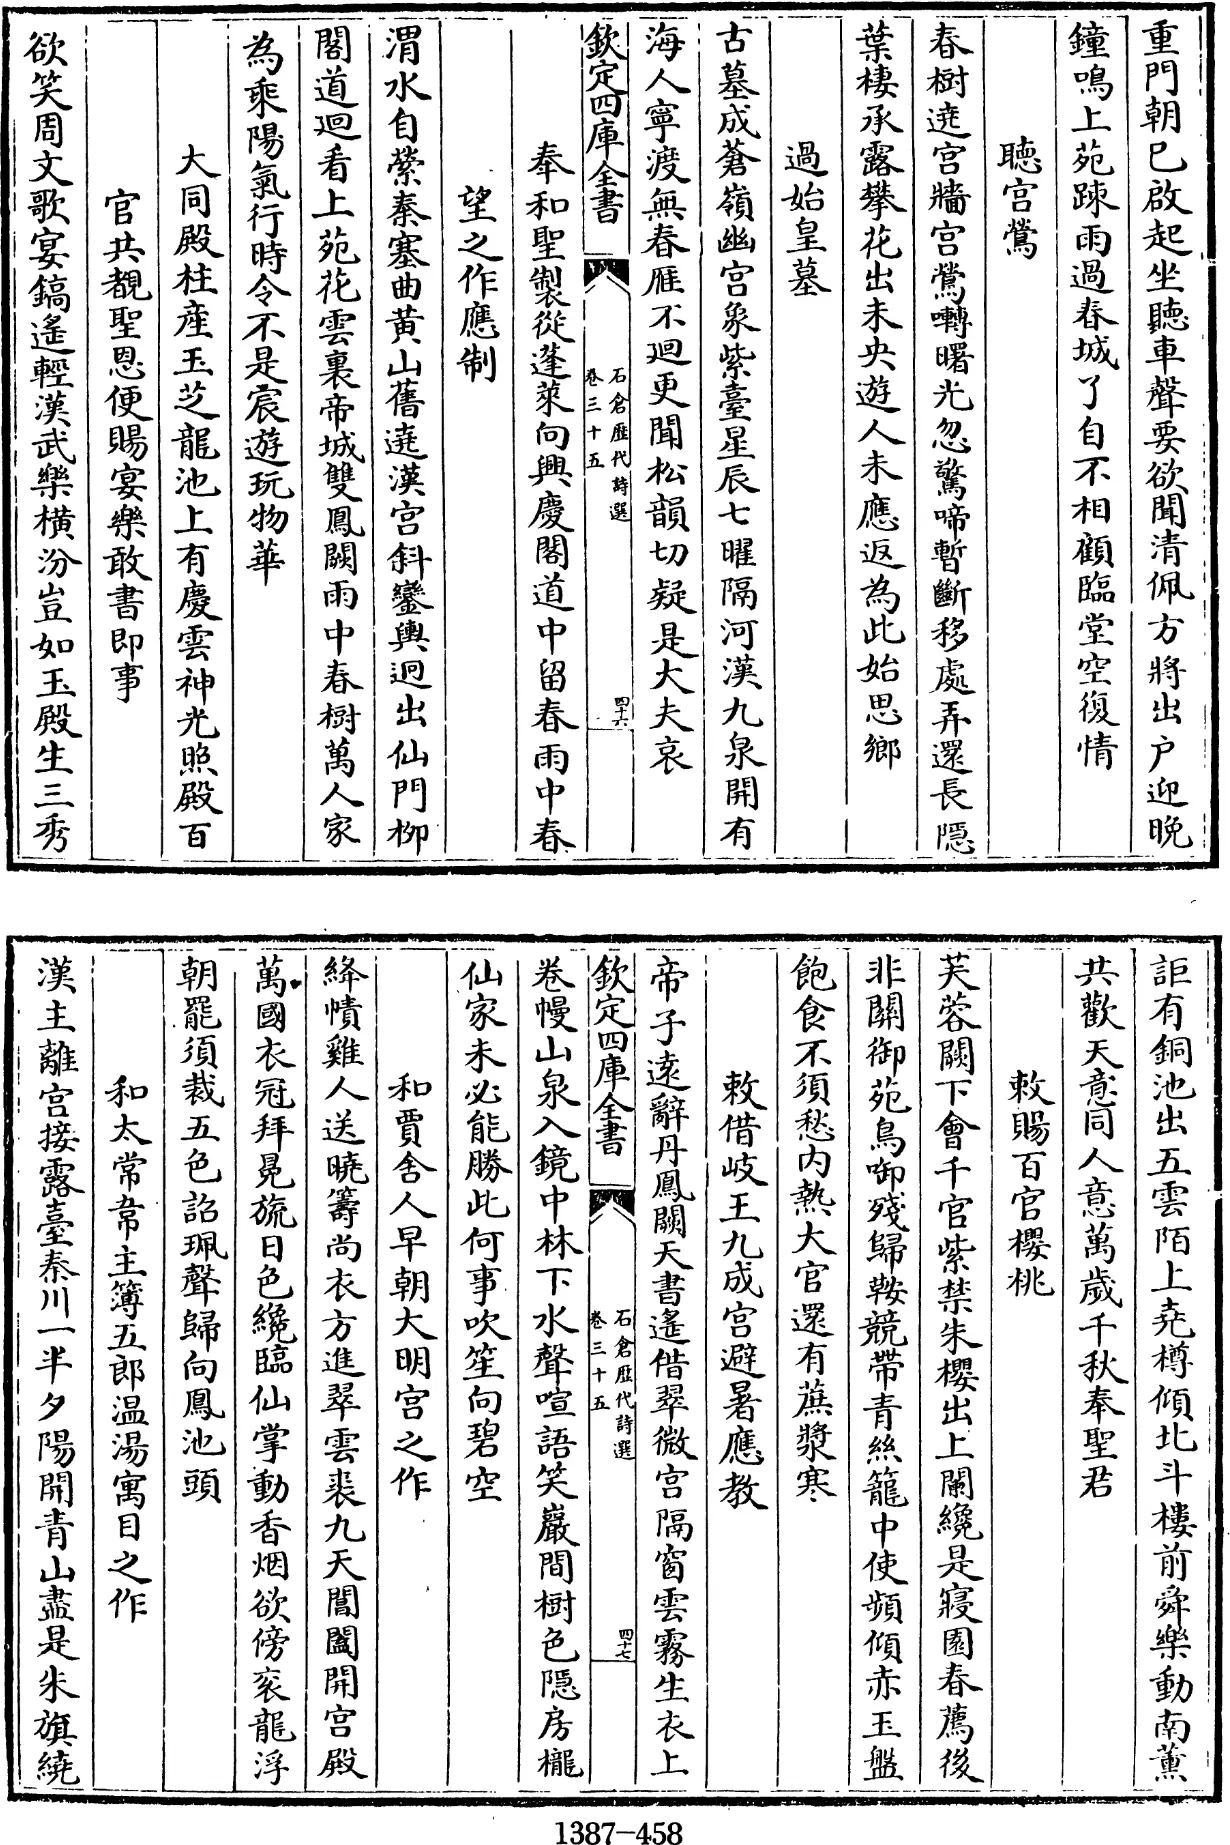 重門朝已啟起坐聽車聲要欲聞清佩方將出户迎晚
鐘鳴上苑踈雨過春城了自不相顧臨堂空復情
聽宫鶯
春樹遶宫牆宫鶯囀曙光忽驚啼暫斷移處弄還長隱
葉棲承露攀花出未央遊人未應返為此始思鄉
過始皇墓
古墓成蒼嶺幽宫象紫臺星辰七曜隔河漢九泉開有
海人寧渡無春雁不迴更聞松韻切疑是大夫哀
欽定四庫全書
石倉歷代詩選
卷三十五
四十六
奉和聖製從蓬萊向興慶閣道中留春雨中春
望之作應制
渭水自縈秦塞曲黄山舊遶漢宫斜鑾輿迥出仙門柳
閣道迴看上苑花雲裏帝城雙鳳闕雨中春樹萬人家
為乘陽氣行時令不是宸遊玩物華
大同殿柱產玉芝龍池上有慶雲神光照殿百
官共覩聖恩便賜宴樂敢書即事
欲笑周文歌宴鎬遙輕漢武樂横汾豈如玉殿生三秀
詎有銅池出五雲陌上堯樽傾北斗樓前舜樂動南薰
共歡天意同人意萬歲千秋奉聖君
敕賜百官櫻桃
芙蓉闕下會千官紫禁朱櫻出上闌纔是寢園春薦後
非關御苑鳥啣殘歸鞍競帶青絲籠中使頻傾赤玉盤
飽食不須愁内熱大官還有蔗漿寒
敕借岐王九成宫避暑應教
帝子遠辭丹鳳闕天書遙借翠微宫隔窗雲霧生衣上
欽定四庫全書
石倉歷代詩選
卷三十五
四十七
卷幔山泉入鏡中林下水聲喧語笑巖間樹色隱房櫳
仙家未必能勝此何事吹笙向碧空
和賈舍人早朝大明宫之作
絳幘雞人送曉籌尚衣方進翠雲裘九天閶闔開宫殿
萬國衣冠拜冕旒日色纔臨仙掌動香烟欲傍衮龍浮
朝罷須裁五色詔珮聲歸向鳳池頭
和太常韋主簿五郎温湯寓目之作
漢主離宫接露臺秦川一半夕陽開青山盡是朱旗繞
1387-458